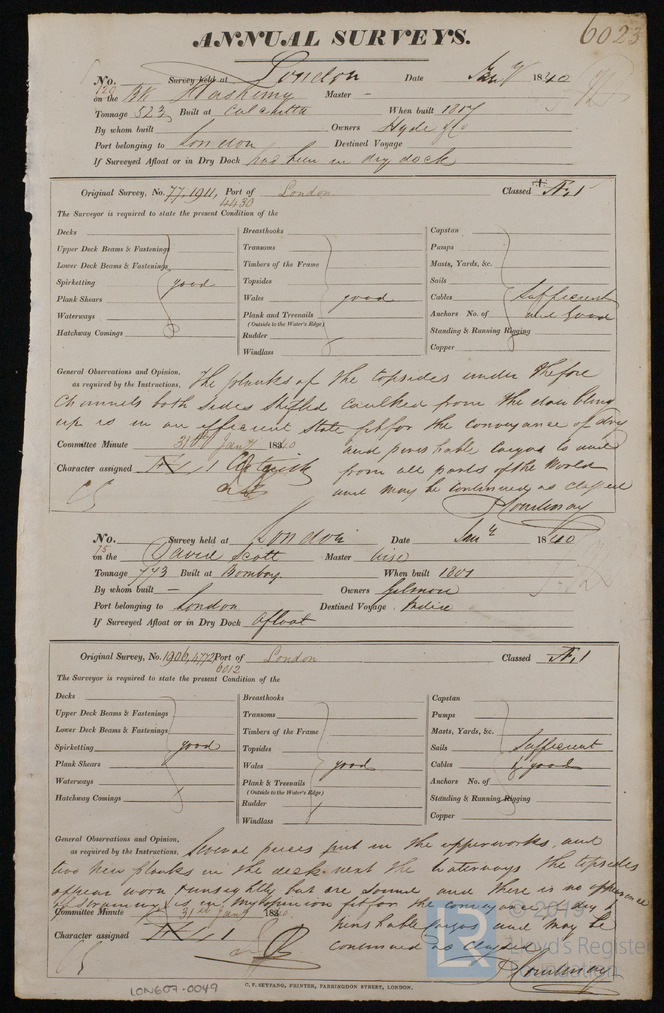 6023
ANNUAL SURVEYS.
No. Survey held at London Date Jany 1840
120
on the Bk Hashemy Master –
Tonnage 523 Built at Calcutta When built 1817
By whom built Owners Hyde & Co
Port belonging to London Destined Voyage
If Surveyed Afloat or in Dry Dock has been in dry dock
Original Survey, No. 77,1911, Port of London Classed Æ1
4430
The Surveyor is required to state the present Condition of the
Decks Breasthooks Capstan
Upper Deck Beams & Fastenings Transoms Pumps
Lower Deck Beams & Fastenings Timbers of the Frame Masts, Yards, &c.
Spirketting good Topsides Sails
Plank Shears Wales good Cables Sufficient
Waterways Plank and Treenails Anchors No. of and Good
(Outside to the Water's Edge)
Hatchway Comings Rudder Standing & Running Rigging
Windlass Copper
General Observations and Opinion, The planks of the topsides under the fore
as required by the Instructions,
Channels both sides shifted caulked from the doubling
up is in an efficient state fit for the conveyance of dry
Committee Minute 31st Jany 1840 and perishable cargos to and
Character assigned Æ 1 from all parts of the World
and may be continued as classed
No. Survey held at London Date Jany 1840
75
on the David Scott Master Wise
Tonnage 773 Built at Bombay When built 1801
By whom built – Owners Gilmore
Port belonging to London Destined Voyage India
If Surveyed Afloat or in Dry Dock afloat
Original Survey, No. 1906,4772 Port of London Classed Æ1
6012
The Surveyor is required to state the present Condition of the
Decks Breasthooks Capstan
Upper Deck Beams & Fastenings Transoms Pumps
Lower Deck Beams & Fastenings Timbers of the Frame Masts, Yards, &c.
Spirketting good Topsides Sails Sufficient
Plank Shears Wales good Cables & good
Waterways Plank & Treenails Anchors No. of
(Outside to the Water's Edge)
Hatchway Comings Rudder Standing & Running Rigging
Windlass Copper
General Observations and Opinion, Several pieces put in the upperworks, and
as required by the Instructions,
two new planks in the deck next the waterways the topsides
appear worn & unsightly but are sound and there is no appearance
of straining is in my opinion fit for the conveyance of dry &
Committee Minute 31st Jany 1840 perishable cargos and may be
Character assigned Æ 1 continued as classed
LON607-0049
C. F. SEYFANG, PRINTER, FARRINGDON STREET, LONDON.
LR
© 2019
Lloyd's Register
Foundation